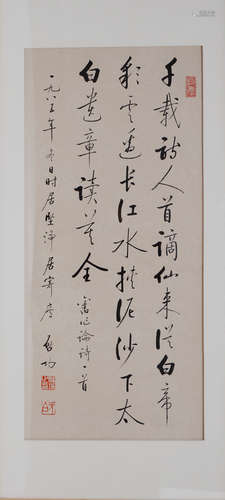 千载诗人首谪仙来从白帝
彩云边长江水挟泥沙下太
白遗章读莫全
旧作论诗一首
一九八三年冬日时居坚净居寄庑 启功